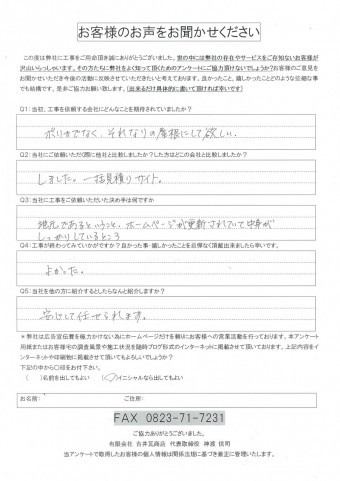 お客様のお声をお聞かせください
この度は弊社に工事をご用命頂き誠にありがとうございました。世の中には弊社の存在やサービスをご存知ないお客様が
沢山いらっしゃいます。その方たちに弊社をよく知って頂くためのアンケートにご協力頂けないでしょうか?お客様のご意見を
お聞かせいただき今後の活動に反映させていただきたいと考えております。良かったこと、嬉しかったことどのような些細な事
でも結構です。是非ご協力お願い致します。(出来るだけ具体的に書いて頂ければ幸いです)
Q1:当初、工事を依頼する会社にどんなことを期待されていましたか?
ボリカでなく、それなりの屋根にして欲しい。
Q2:当社にご依頼いただく際に他社と比較しましたか?した方はどこの会社と比較しましたか?
しました。一括見積りサイト。
Q3:当社に工事をご依頼いただいた決め手は何ですか
地元であるということ、ホームページが更新されていて中身が
しっかりしているところ
Q4:工事が終わってみていかがですか?良かった事・嬉しかったことを忌憚なく頂戴出来ましたら幸いです。
よかった。
Q5:当社を他の方に紹介するとしたらなんと紹介しますか?
安心して任せられます。
*弊社は広告宣伝費を極力かけない為にホームページだけを頼りにお客様への営業活動を行っております。本アンケート
用紙またはお客様宅の調査風景や施工状況を随時ブログ形式のインターネットに掲載させて頂いております。上記内容をイ
ンターネットや印刷物に掲載させて頂いてもよろしいでしょうか?
下記の中から〇印をお付下さい。
( )名前を出してもよい (○)イニシャルなら出してもよい
お名前: ご住所:
FAX 0823-71-7231
ご協力ありがとうございました。
有限会社 古井瓦商店 代表取締役 神渡 信司
当アンケートで取得したお客様の個人情報は関係法規に基づき厳正に管理いたします。